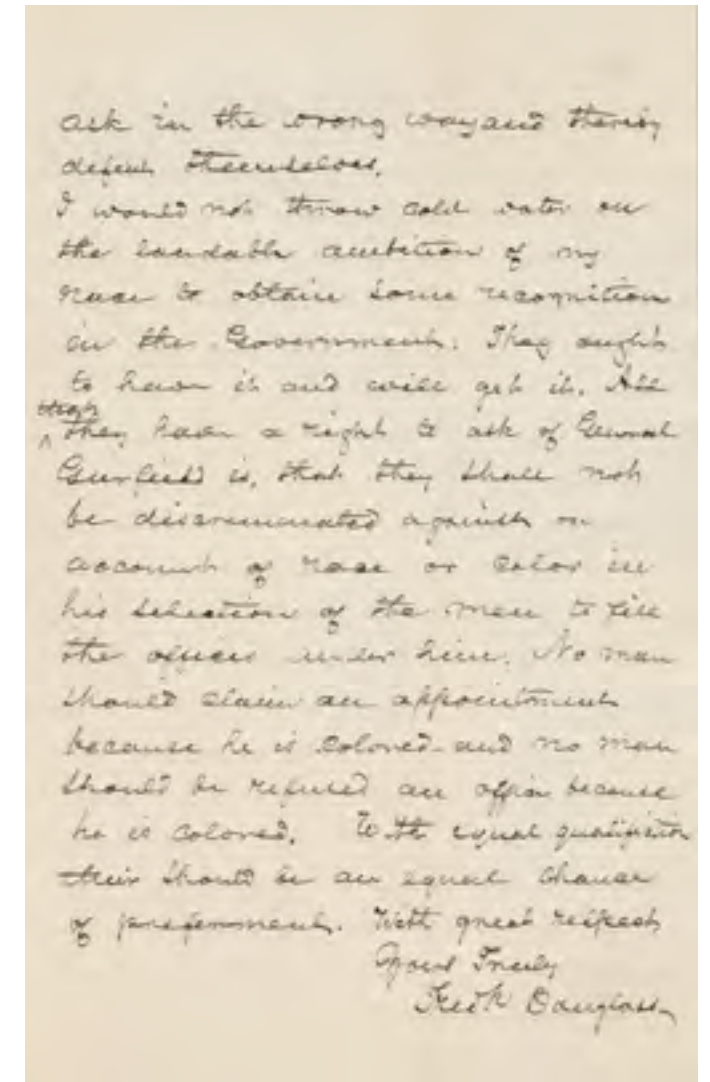 ask in the wrong way and thereby
defeat themselves.
I would not throw cold water on
the laudable ambition of my
race to obtain some recognition
in the Government. They ought
to have it and will get it. All
that
they have a right to ask of General
Garfield is, that they shall not
be discriminated against on
account of race or color in
his selection of the men to fill
the offices under him. No man
should claim an appointment
because he is colored and no man
should be refused an office because
he is colored. With equal qualification
their should be an equal chance
of preferrment. With great respect
Yours Truly
Fredk Douglass